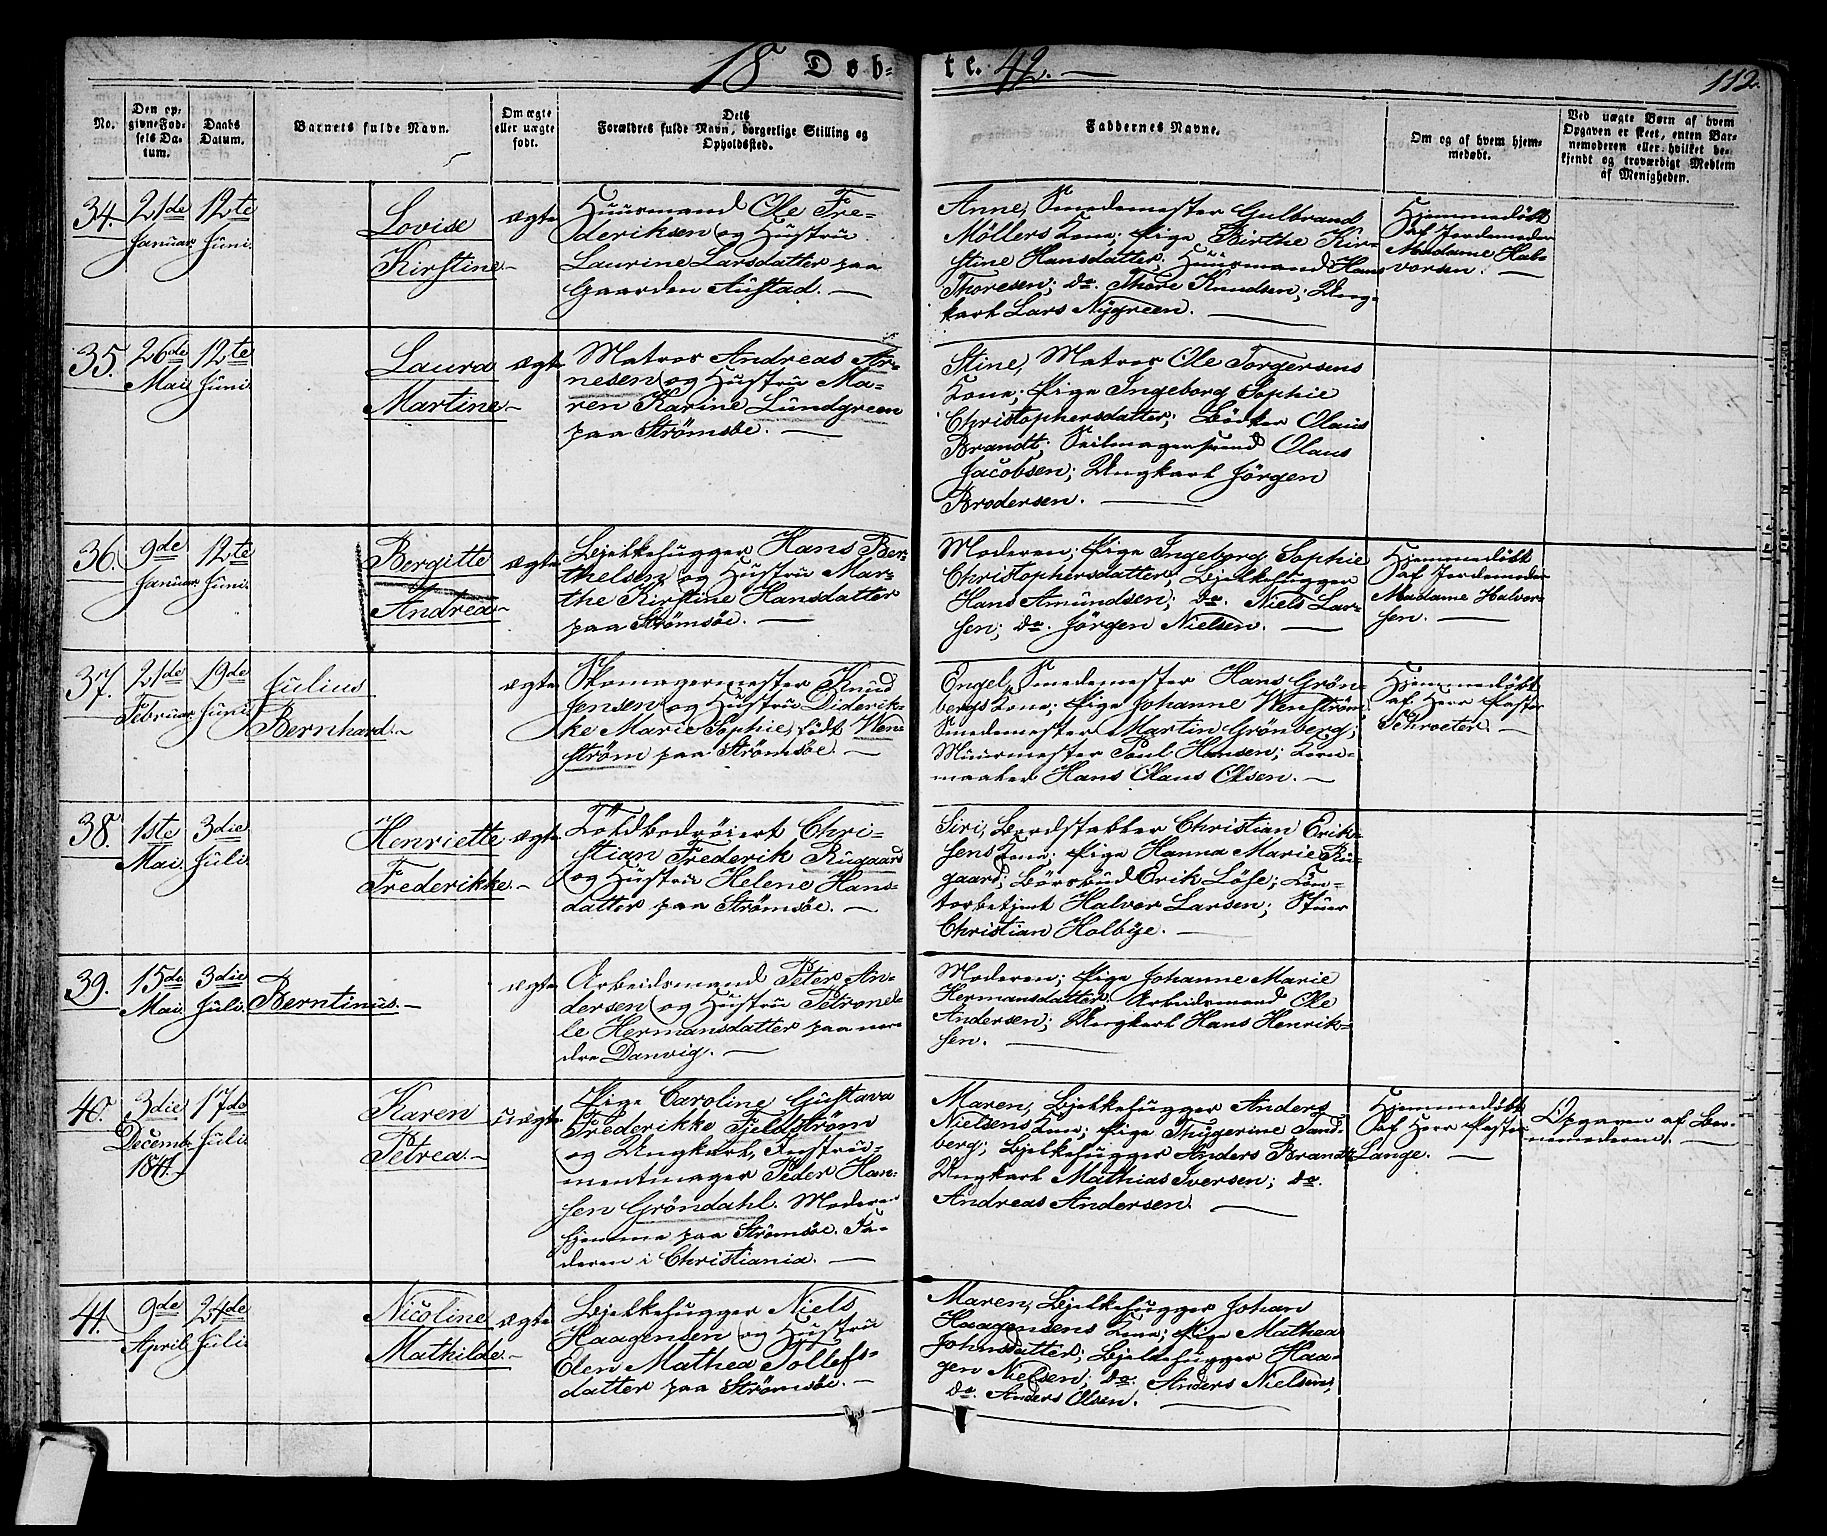 18 Døb- te. 42.
112.
No.
Den op-
givne Fød-
sels Da-
tum.
Daabs
Datum.
Barnets fulde Navn.
Om ægte
eller uægte
født.
Dets
Forældres fulde Navn, borgerlige Stilling og
Opholdssted.
Faddernes Navne.
Om og af hvem hjem-
medøbt.
Ved uægte Børn af hvem
Opgaven er skeet, enten Bar-
nemoderen eller hvilket be-
kjendt og troværdigt Medlem
af Menigheden.
34.
21de
Januar.
12te
Juni.
Lovise
Kirstine
ægte
Huusmand Ole Fre-
deriksen og Hustru
Laurine Larsdatter paa
Gaarden Austad.
Anne, Smedemester Gulbrand
Möllers Kone; Pige Birthe Kir-
stine Hansdatter; Huusmand Hans
Thoresen; do. Thore Knudsen; Ung-
karl Lars Nygreen.
Hjemmedøbt
af Jordemoder
Madame Hal-
vorsen.
35.
26de
Mai
12te
Juni.
Laura
Martine
ægte
Matros Andreas Ar-
nesen og Hustru Ma-
ren Karine Lundgreen
paa Strømsöe.
Stine, Matros Ole Torgersens
Kone; Pige Ingeborg Sophie
Christophersdatter; Bödker Olaus
Brandt; Seilmagersvend Olaus
Jacobsen; Ungkarl Jörgen
Brodersen.
36.
9de
Januar.
12te
Juni.
Bergitte
Andrea
ægte
Bjelkehugger Hans Ber-
thelsen og Hustru Mar-
the Kirstine Hansdatter
paa Strømsöe.
Moderen; Pige Ingeborg Sophie
Christophersdatter; Bjelkehugger
Hans Amundsen; do. Niels Lar-
sen; do. Jörgen Nielsen.
Hjemmedøbt
af Jordemoder
Madame Halvor-
sen.
37.
21de
Februar.
19de
Juni
Julius
Bernhard.
ægte
Skomagermester Knud
Jensen og Hustru Diderik-
ke Marie Sophie, født Wen-
ström paa Strømsöe.
Engel, Smedemester Hans Grön-
bergs Kone; Pige Johanne Wenström;
Smedemester Martin Grönberg;
Muurmester Poul Hansen; Korn-
maaler Hans Olaus Olsen.
Hjemmedøbt
af Herr Pastor
Schroeter.
38.
1ste
Mai.
3die
Juli.
Henriette
Frederikke
ægte
Toldbedrøiert Chri-
stian Frederik Rugaard
og Hustru Helene Hans-
datter paa Strømsöe.
Siri, Bordstabler Christian Erik-
sens Kone; Pige Hanna Marie Ru-
gaard; Börsbud Erik Löse; Con-
torbetjent Halvor Larsen; Stuer
Christian Holbye.
39.
15de
Mai.
3die
Juli.
Berntinus.
ægte
Arbeidsmand Peter An-
dersen og Hustru Petronel-
le Hermansdatter paa nor-
dre Danvig.
Moderen; Pige Johanne Marie
Hermansdatter; Arbeidsmand Ole
Andersen; Ungkarl Hans Henrik-
sen.
40.
3die
Decembr
1841.
17de
Juli
Karen
Petrea.
uægte
Pige Caroline Gustava
Frederikke Fjeldström
og Ungkarl, Instru-
mentmager Peder Han-
sen Gröndahl. Moderen
hjemme paa Strømsöe. Fa-
deren i Christiania.
Maren, Bjelkehugger Anders
Nielsens Kone; Pige Thygerine Sand-
berg; Bjelkehugger Anders Brandt;
Ungkarl Mathias Iversen; do.
Andreas Andersen.
Hjemmedøbt
af Herr Pastor
Lange.
Opgaven af Bar-
nemoderen.
41.
9de
April.
24de
Juli.
Nicoline
Mathilde
ægte
Bjelkehugger Niels
Haagensen og Hustru
Elen Mathea Tollefs-
datter paa Strømsöe.
Maren, Bjelkehugger Johan
Haagensens Kone; Pige Mathea
Johnsdatter; Bjelkehugger Haa-
gen Nielsen; do. Anders Nielsen;
do. Anders Olsen.